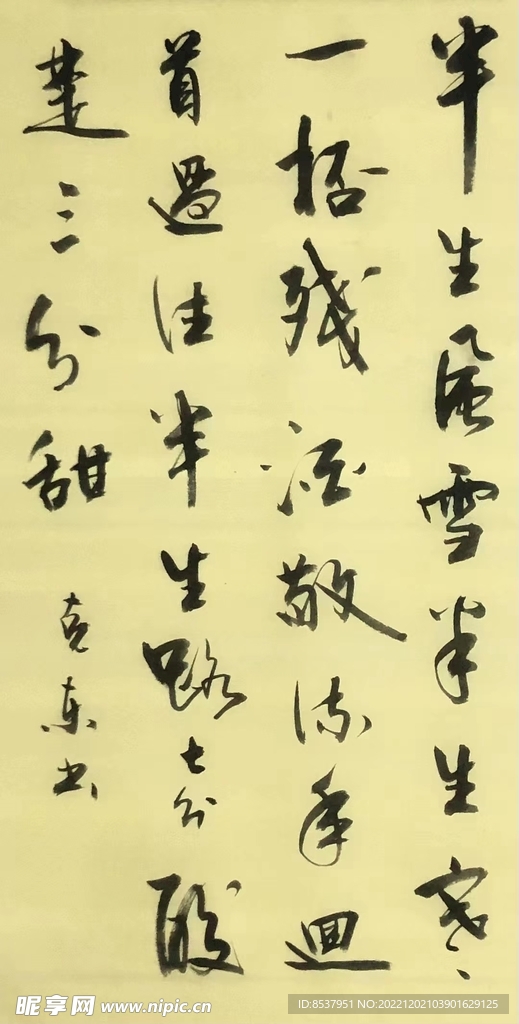 半生風雪半生寒
一桮残酒敬流年迴
首過往半生路七分酸
楚三分甜
克东书
昵享网 www.nipic.cn
ID:8537951 NO:20221202103901629125